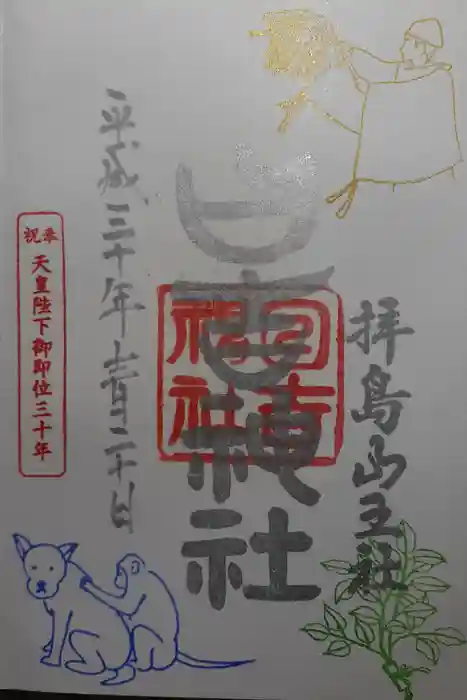 拝島山王社
日吉神社
日吉
神社
平成三十年十一月二十日
奉祝
天皇陛下御即位三十年